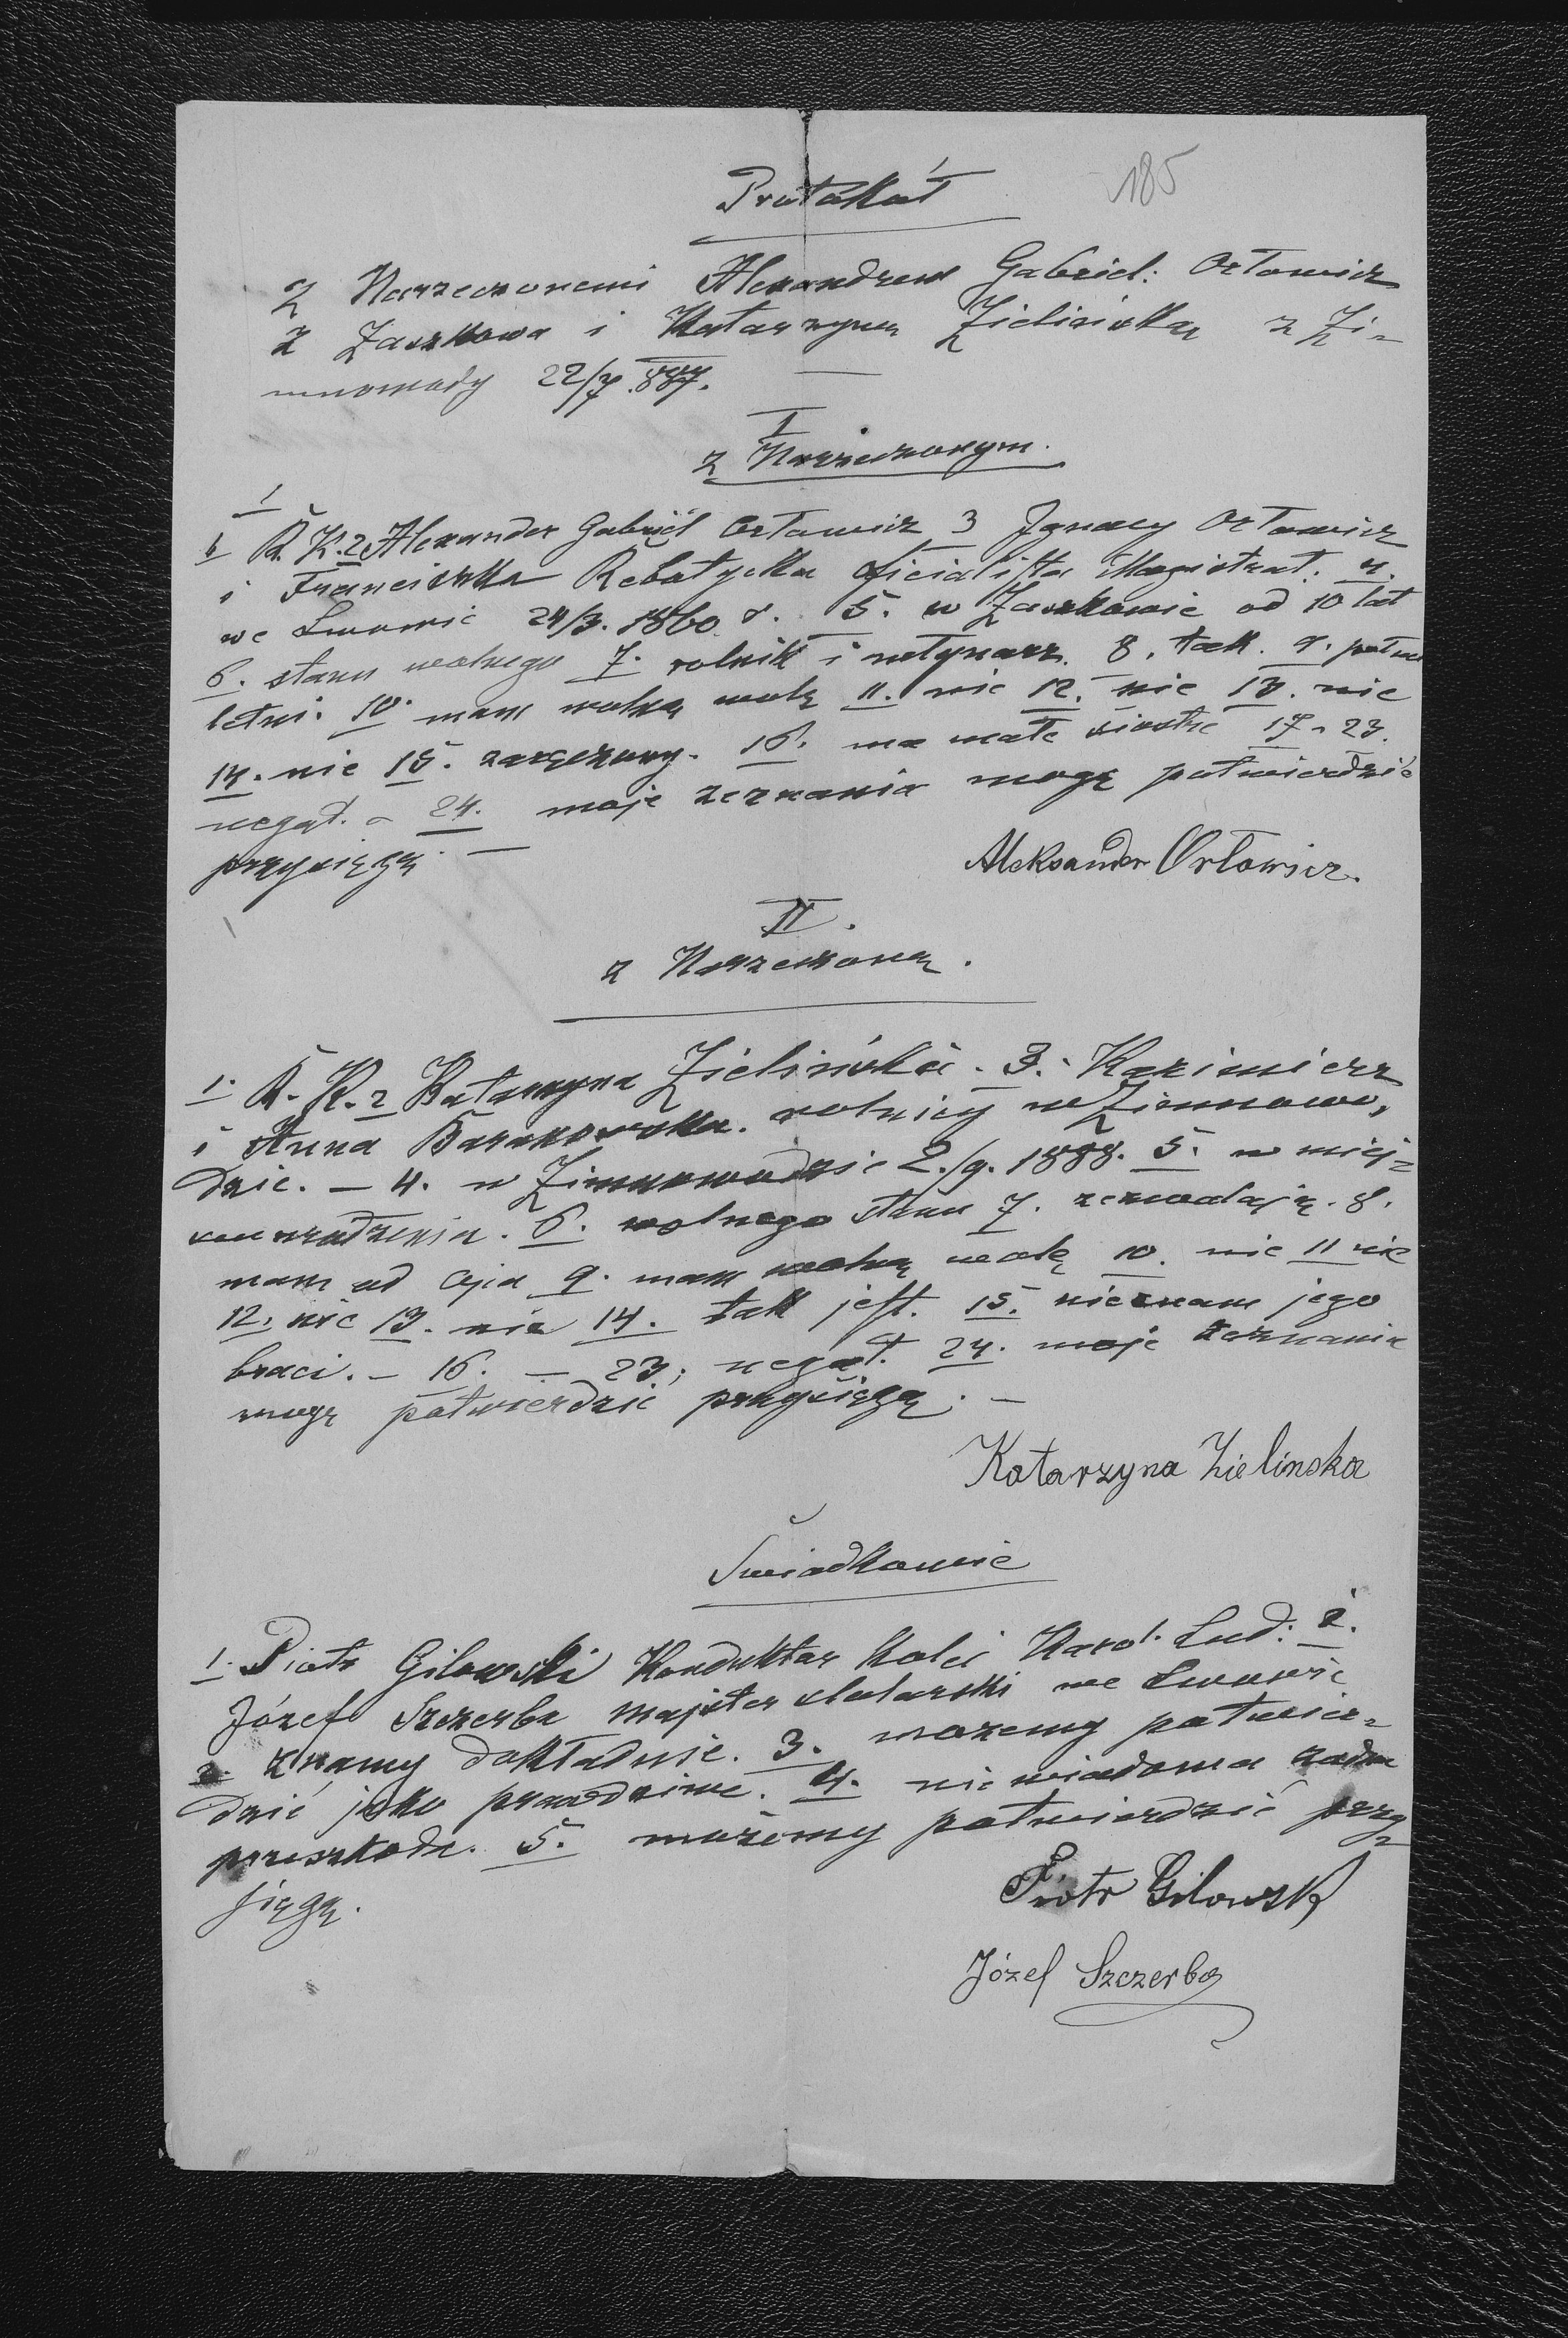 185
Protokół
Z Narzeczonemi Alexandrem Gabriel: Orłowicz
z Zaszkowa i Katarzyną Zielińską z Zi-
mnowody 22/7.887. —
I
z Narzeczonym.
1 R. K. 2 Alexander Gabriel Orłowicz 3 Ignacy Orłowicz
i Franciszka Rebatycka oficialista Magistrat. 4.
we Lwowie 24/3. 1860 r. 5. w Zaszkowie od 10 lat
6. stanu wolnego 7. rolnik i młynarz. 8. tak. 9. pełno
letni. 10. mam wolną wolę 11. nie 12. nie 13. nie
14. nie 15. zaręczony. 16. ma małe siostre 17-23.
negat. - 24. moje zeznania mogę potwierdzić
przysięgą. —
Aleksander Orłowicz.
II.
z Narzeczoną.
1. R. K. 2 Katarzyna Zielińska. 3. Kazimierz
i Anna rolnicy w Zimnowo-
dzie. — 4. w Zimnowodzie 2./9. 1888. 5. w miej-
scu urodzenia. 6. wolnego stanu 7. zezwalają. 8.
mam od ojca 9. mam wolną wolę 10. nie 11 nie
12. nie 13. nie 14. tak jest. 15. nieznam jego
braci. — 16. — 23; negat. 24. moje zeznania
mogę potwierdzić przysięgą. —
Katarzyna Zielinska
Świadkowie
1. Piotr Gilowski Konduktor Kolei Karol. Lud: 2.
Józef Szczerba majster we Lwowie
2. znamy dokładnie. 3. możemy potwier-
dzić jako prawdziwe. 4. nie wiadoma żadna
przeszkoda. 5. możemy potwierdzić przy-
sięgą.
Piotr Gilowski
Józef Szczerba